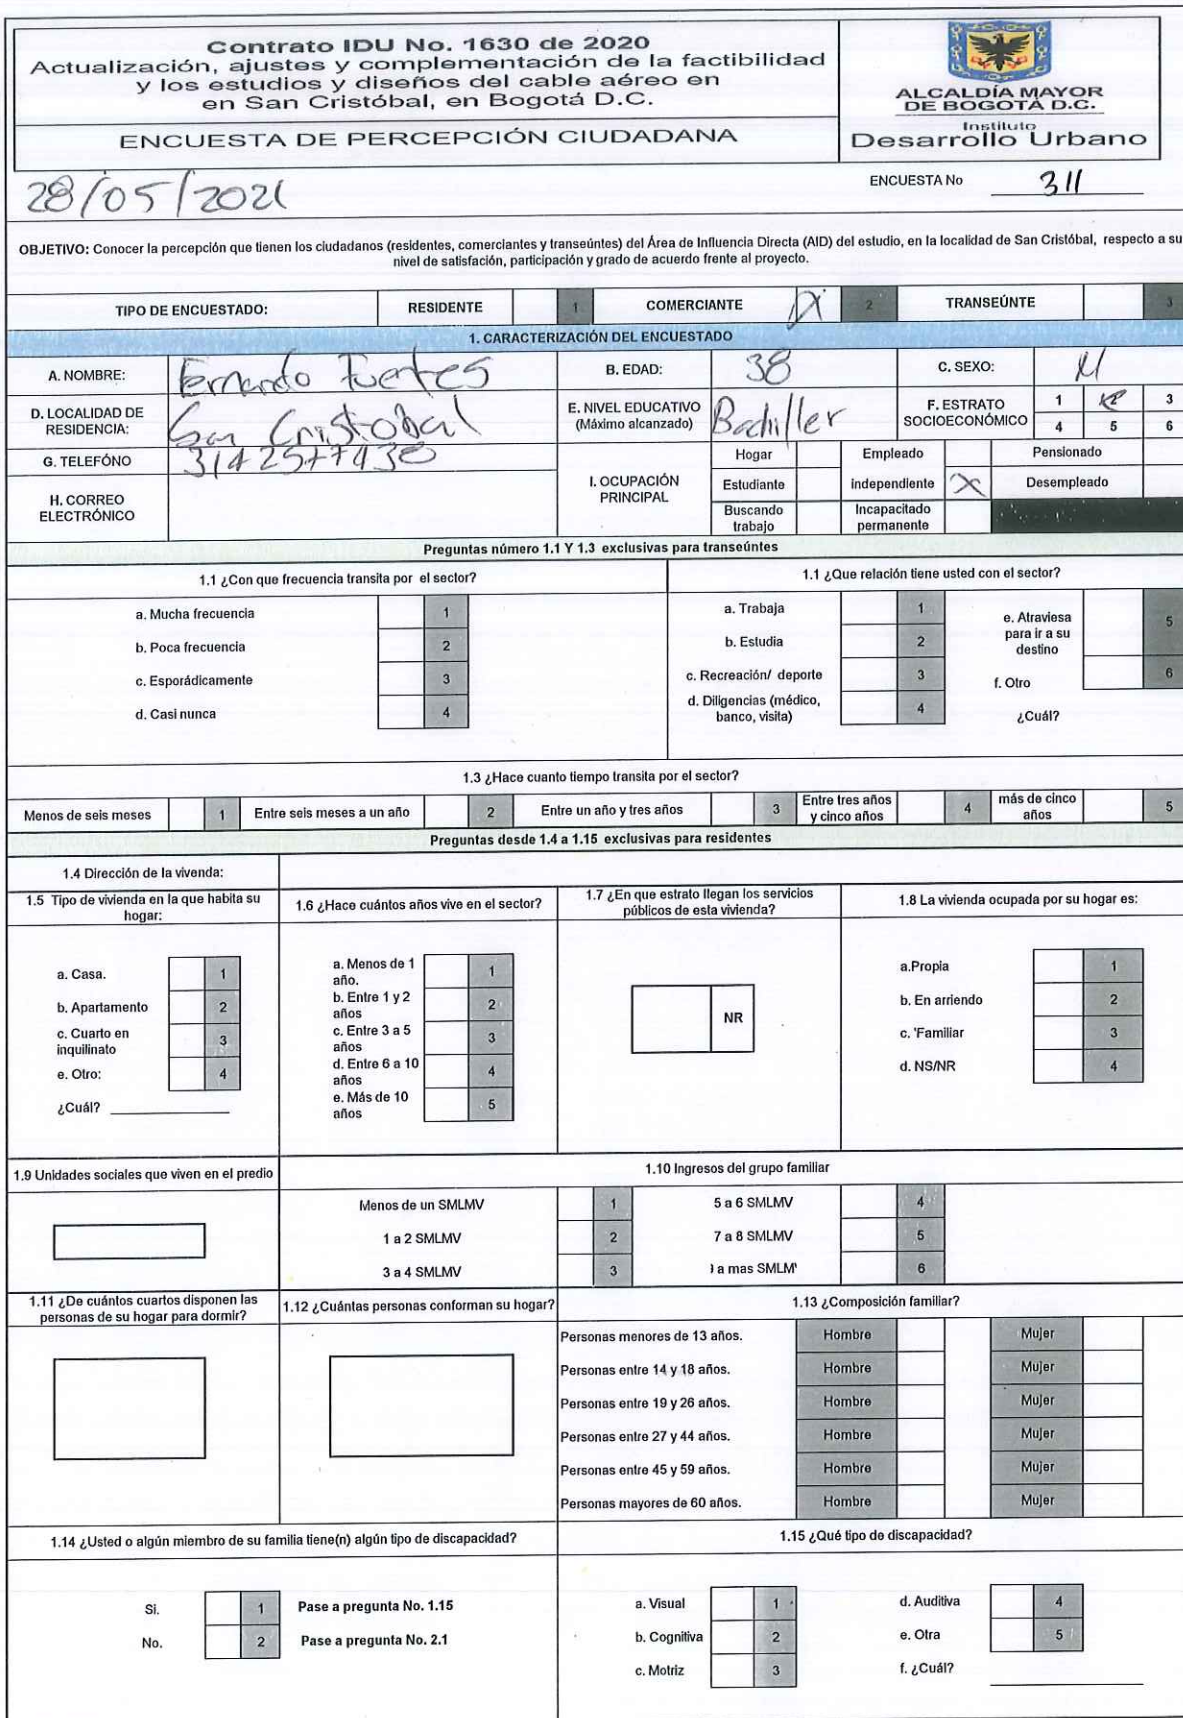 Contrato IDU No. 1630 de 2020
Actualización, ajustes y complementación de la factibilidad
y los estudios y diseños del cable aéreo en
en San Cristóbal, en Bogotá D.C.
ENCUESTA DE PERCEPCIÓN CIUDADANA
ALCALDÍA MAYOR
DE BOGOTÁ D.C.
Instituto
Desarrollo Urbano
28/05/2021
ENCUESTA No 311
OBJETIVO: Conocer la percepción que tienen los ciudadanos (residentes, comerciantes y transeúntes) del Área de Influencia Directa (AID) del estudio, en la localidad de San Cristóbal, respecto a su
nivel de satisfacción, participación y grado de acuerdo frente al proyecto.
TIPO DE ENCUESTADO: RESIDENTE 1 COMERCIANTE X 2 TRANSEÚNTE 3
1. CARACTERIZACIÓN DEL ENCUESTADO
A. NOMBRE: Fernando Fuentes B. EDAD: 38 C. SEXO: M
D. LOCALIDAD DE RESIDENCIA: San Cristobal E. NIVEL EDUCATIVO (Máximo alcanzado) Bachiller F. ESTRATO SOCIOECONÓMICO 1 2 3
4 5 6
G. TELEFÓNO 3142577430
H. CORREO ELECTRÓNICO
I. OCUPACIÓN PRINCIPAL
Hogar Empleado Pensionado
Estudiante independiente X Desempleado
Buscando trabajo Incapacitado permanente
Preguntas número 1.1 Y 1.3 exclusivas para transeúntes
1.1 ¿Con que frecuencia transita por el sector?
a. Mucha frecuencia 1
b. Poca frecuencia 2
c. Esporádicamente 3
d. Casi nunca 4
1.1 ¿Que relación tiene usted con el sector?
a. Trabaja 1
b. Estudia 2
c. Recreación/ deporte 3
d. Diligencias (médico, banco, visita) 4
e. Atraviesa para ir a su destino 5
f. Otro 6
¿Cuál?
1.3 ¿Hace cuanto tiempo transita por el sector?
Menos de seis meses 1 Entre seis meses a un año 2 Entre un año y tres años 3 Entre tres años y cinco años 4 más de cinco años 5
Preguntas desde 1.4 a 1.15 exclusivas para residentes
1.4 Dirección de la vivenda:
1.5 Tipo de vivienda en la que habita su hogar:
a. Casa. 1
b. Apartamento 2
c. Cuarto en inquilinato 3
e. Otro: 4
¿Cuál?
1.6 ¿Hace cuántos años vive en el sector?
a. Menos de 1 año. 1
b. Entre 1 y 2 años 2
c. Entre 3 a 5 años 3
d. Entre 6 a 10 años 4
e. Más de 10 años 5
1.7 ¿En que estrato llegan los servicios públicos de esta vivienda?
NR
1.8 La vivienda ocupada por su hogar es:
a.Propia 1
b. En arriendo 2
c. 'Familiar 3
d. NS/NR 4
1.9 Unidades sociales que viven en el predio
1.10 Ingresos del grupo familiar
Menos de un SMLMV 1 5 a 6 SMLMV 4
1 a 2 SMLMV 2 7 a 8 SMLMV 5
3 a 4 SMLMV 3 a mas SMLM 6
1.11 ¿De cuántos cuartos disponen las personas de su hogar para dormir?
1.12 ¿Cuántas personas conforman su hogar?
1.13 ¿Composición familiar?
Personas menores de 13 años. Hombre Mujer
Personas entre 14 y 18 años. Hombre Mujer
Personas entre 19 y 26 años. Hombre Mujer
Personas entre 27 y 44 años. Hombre Mujer
Personas entre 45 y 59 años. Hombre Mujer
Personas mayores de 60 años. Hombre Mujer
1.14 ¿Usted o algún miembro de su familia tiene(n) algún tipo de discapacidad?
Si. 1 Pase a pregunta No. 1.15
No. 2 Pase a pregunta No. 2.1
1.15 ¿Qué tipo de discapacidad?
a. Visual 1 d. Auditiva 4
b. Cognitiva 2 e. Otra 5
c. Motriz 3 f. ¿Cuál?